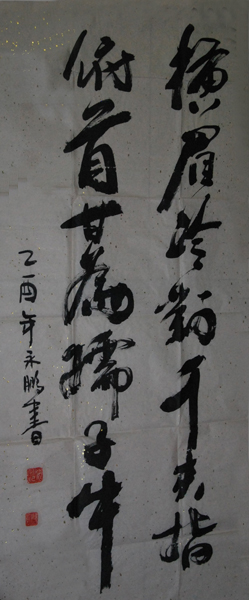 横眉冷對千夫指
俯首甘為孺子牛
乙酉年永鵬書